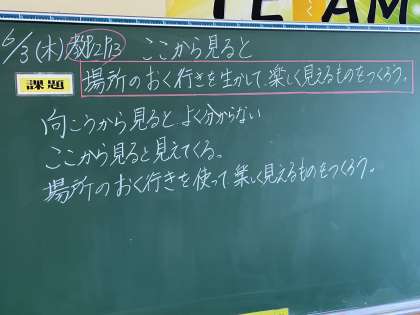 TEAM
6/3(木) 教P.12,13 ここから見ると
課題
場所のおく行きを生かして、楽しく見えるものをつくろう。
向こうから見ると よく分からない
ここから見ると見えてくる。
場所のおく行きを使って楽しく見えるものをつくろう。